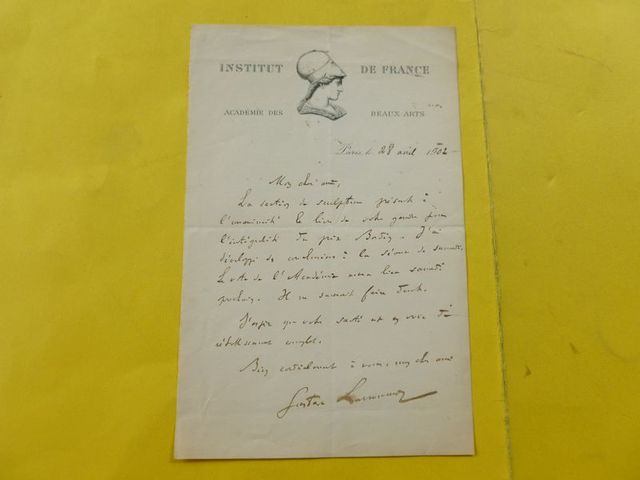 INSTITUT DE FRANCE
ACADÉMIE DES BEAUX-ARTS
Paris le 28 avril 1902
Mon cher ami,
La section de sculpture présente à
l'unanimité le livre de votre gendre pour
l'intégralité du prix Bordin. J'ai
développé ses conclusions à la séance de samedi.
Le vote de l'Académie aura lieu samedi
prochain. Il ne saurait faire doute.
J'espère que votre santé est en voie de
rétablissement complet.
Bien cordialement à vous, mon cher ami
Gustave Larroumet